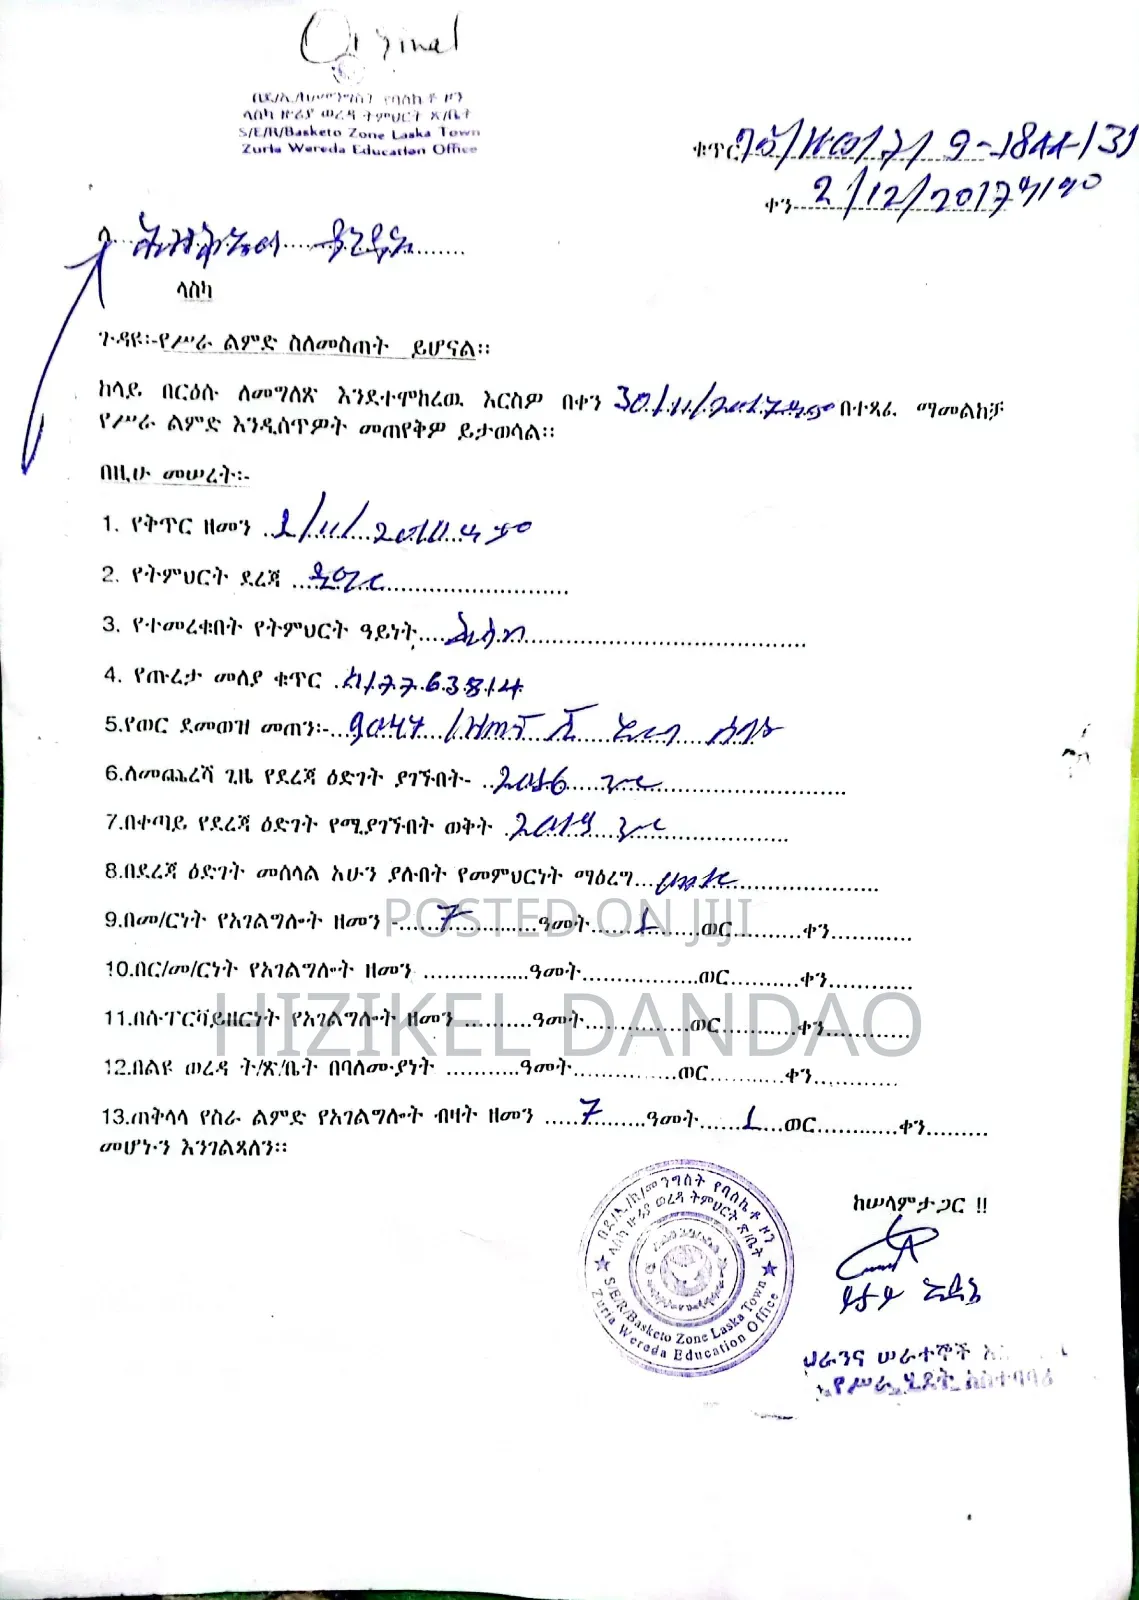 Original
በደ/ኢ/ክ/መንግስት የባስኬቶ ዞን
ላስካ ዙሪያ ወረዳ ትምህርት ጽ/ቤት
S/E/R/Basketo Zone Laska Town
Zuria Wereda Education Office
ቁጥር 9-1844/31
ቀን 2/12/2017 ዓ/ም
ለ ሕዝቅኤል ዳንዳኦ
ላስካ
ጉዳዩ፡-የሥራ ልምድ ስለመስጠት ይሆናል፡፡
ከላይ በርዕሱ ለመግለጽ እንደተሞከረዉ እርስዎ በቀን 30/11/2017 ዓ.ም በተጻፈ ማመልከቻ
የሥራ ልምድ እንዲሰጥዎት መጠየቅዎ ይታወሳል፡፡
በዚሁ መሠረት፡-
1. የቅጥር ዘመን 1/11/2010 ዓ.ም
2. የትምህርት ደረጃ ዲግሪ
3. የተመረቁበት የትምህርት ዓይነት
4. የጡረታ መለያ ቁጥር 017763814
5.የወር ደመወዝ መጠን፡- 9047 /ዘጠኝ ሺ አርባ ሰባት
6.ለመጨረሻ ጊዜ የደረጃ ዕድገት ያገኙበት- 2016
7.በቀጣይ የደረጃ ዕድገት የሚያገኙበት ወቅት 2019
8.በደረጃ ዕድገት መሰላል አሁን ያሉበት የመምህርነት ማዕረግ
9.በመ/ርነት የአገልግሎት ዘመን - 7 ዓመት 1 ወር ቀን
10.በር/መ/ርነት የአገልግሎት ዘመን ዓመት ወር ቀን
11.በሱፐርቫይዘርነት የአገልግሎት ዘመን ዓመት ወር ቀን
12.በልዩ ወረዳ ት/ጽ/ቤት በባለሙያነት ዓመት ወር ቀን
13.ጠቅላላ የስራ ልምድ የአገልግሎት ብዛት ዘመን 7 ዓመት 1 ወር ቀን
መሆኑን እንገልጻለን፡፡
POSTED ON JIJI
HIZIKEL DANDAO
ከሠላምታጋር !!
በደ/ኢ/ክ/መንግስት የባስኬቶ ዞን
ላስካ ዙሪያ ወረዳ ትምህርት ጽ/ቤት
S/E/R/Basketo Zone Laska Town
Zuria Wereda Education Office
የሥራ ሂደት አስተባባሪ